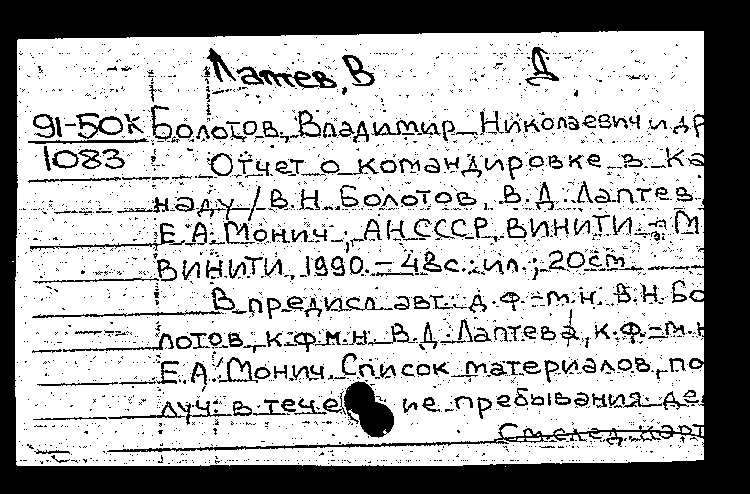 Лаптев, В Д
91-50К Болотов, Владимир Николаевич и др
1083 Отчет о командировке в Ка
наду / В.Н. Болотов, В.Д. Лаптев,
Е.А. Монич ; АН СССР, ВИНИТИ. - М
ВИНИТИ, 1990. - 48с.: ил.; 20см
В предисл. авт.: д.ф.-м.н. В.Н. Бо
лотов, к.ф.м.н. В.Д. Лаптева, к.ф.-м.н
Е.А. Монич. Список материалов, по
луч. в тече ие пребывания дел
См. след. карт